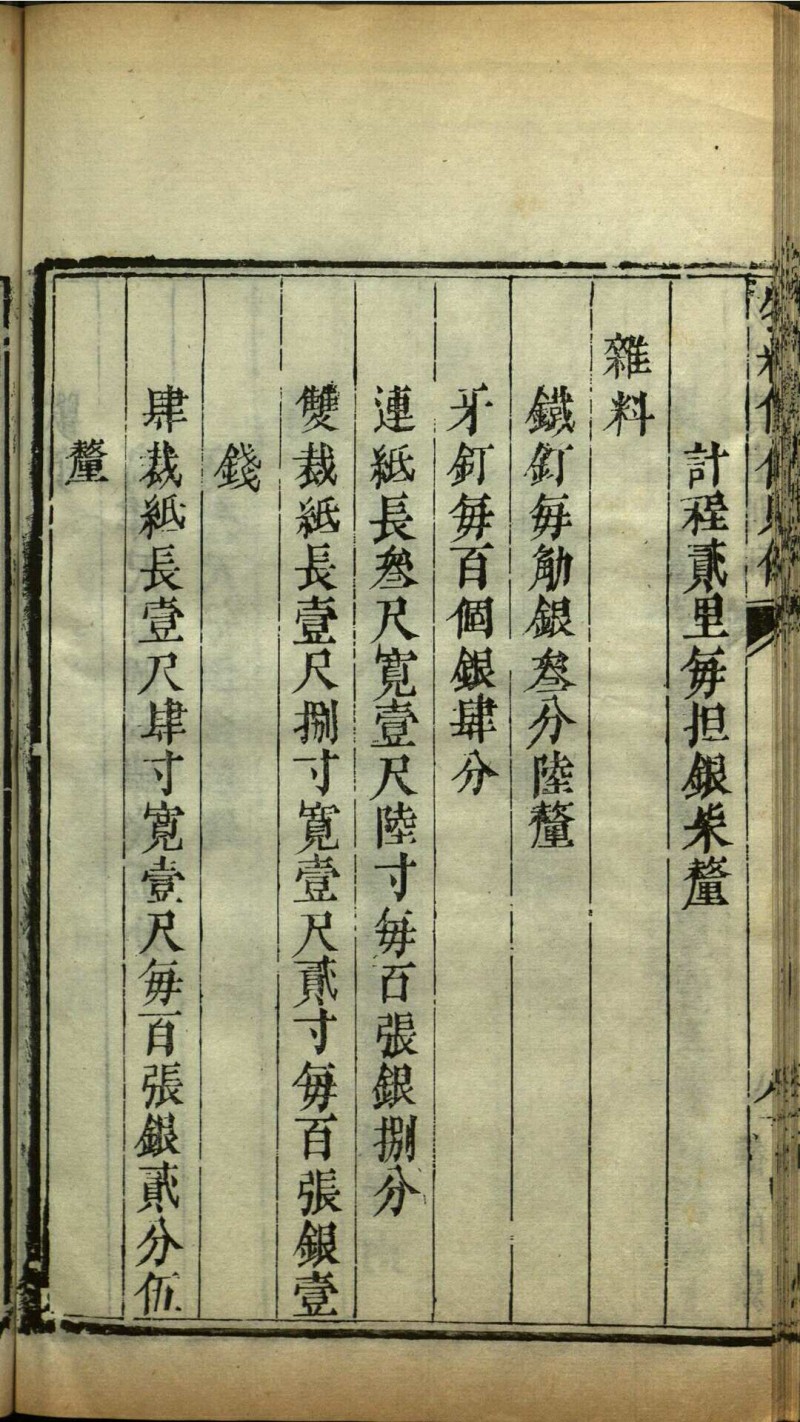 計程貳里每担銀柒釐
雜料
鐵釘每觔銀叄分陸釐
牙釘每百個銀肆分
連紙長叄尺寬壹尺陸寸每百張銀捌分
雙裁紙長壹尺捌寸寬壹尺貳寸每百張銀壹
錢
肆裁紙長壹尺肆寸寬壹尺每百張銀貳分伍
釐